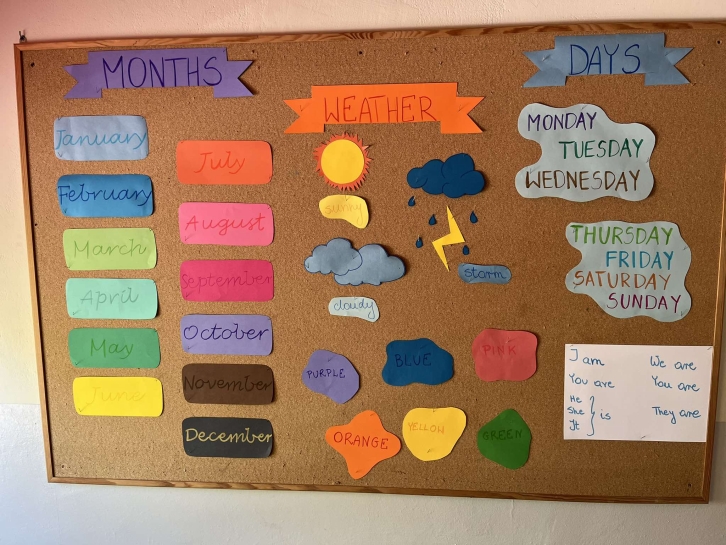 MONTHS
January
February
March
April
May
June
July
August
September
October
November
December
WEATHER
sunny
storm
cloudy
PURPLE
BLUE
PINK
ORANGE
YELLOW
GREEN
DAYS
MONDAY
TUESDAY
WEDNESDAY
THURSDAY
FRIDAY
SATURDAY
SUNDAY
I am
You are
He
She
It
} is
We are
You are
They are